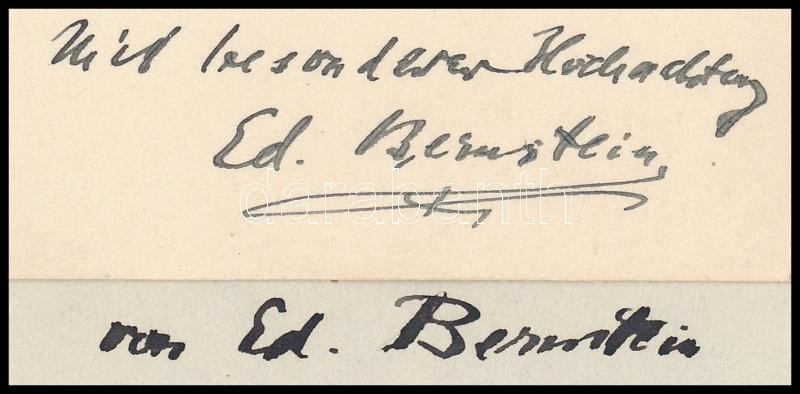 Mit besonderer Hochachtung
Ed. Bernstein
darabanth
von Ed. Bernstein